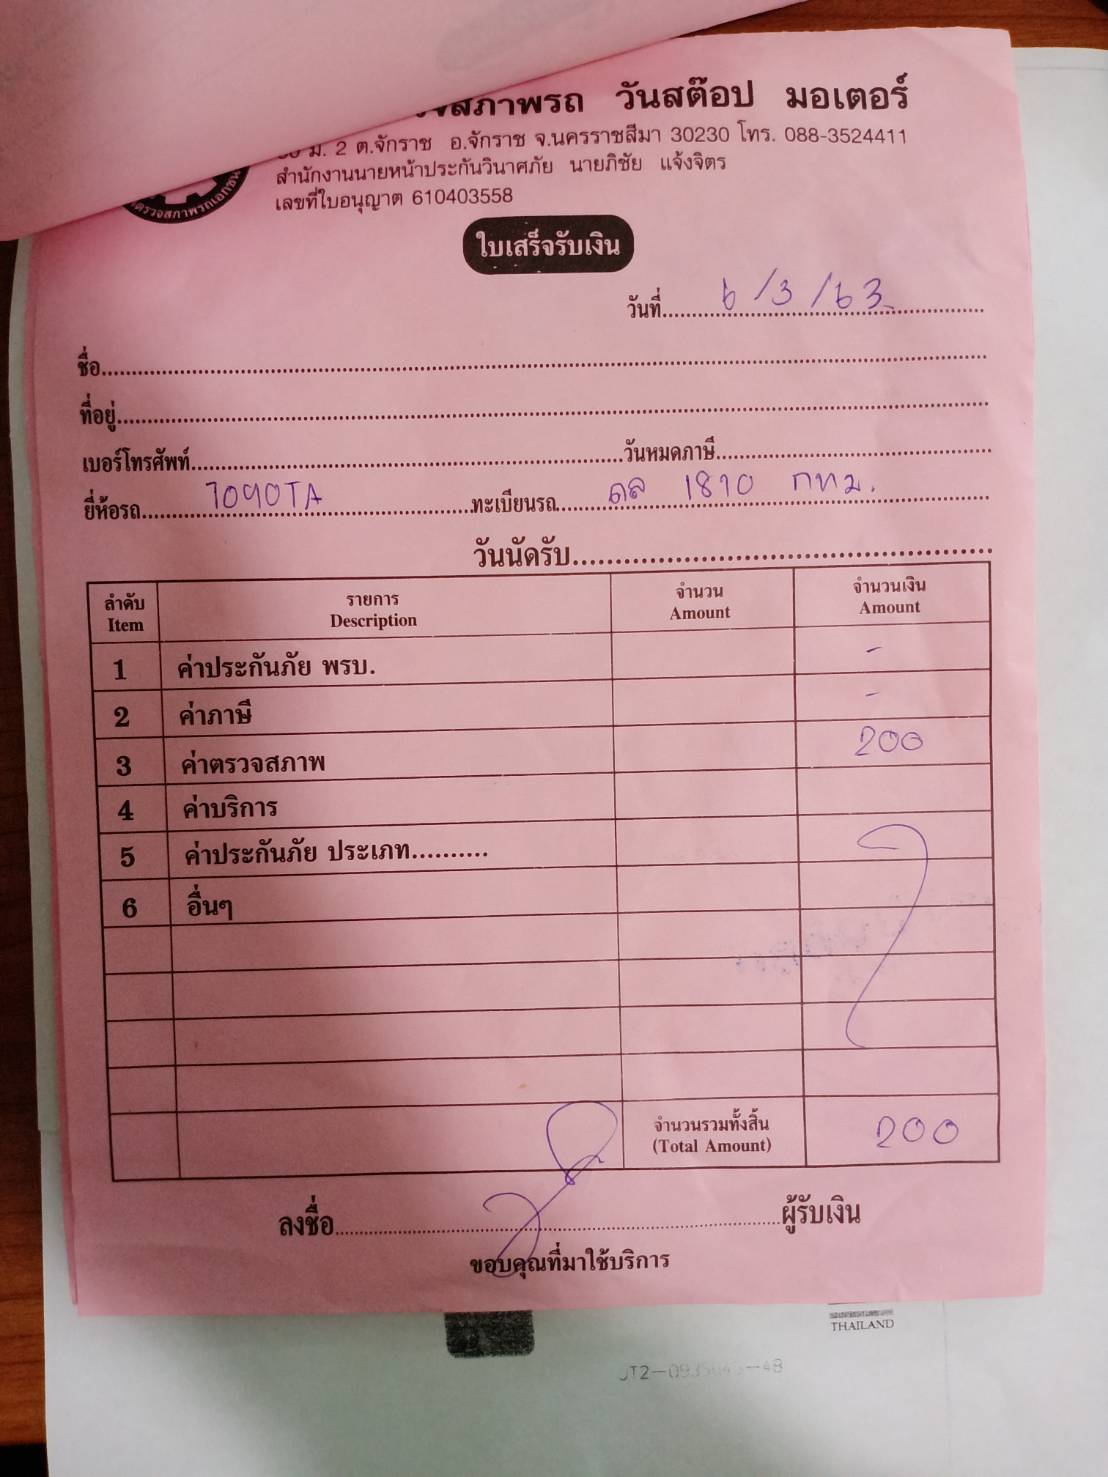 วันสต๊อป มอเตอร์
ม. 2 ต.จักราช อ.จักราช จ.นครราชสีมา 30230 โทร. 088-3524411
สำนักงานนายหน้าประกันวินาศภัย นายภิชัย แจ้งจิตร
เลขที่ใบอนุญาต 610403558
ตรวจสภาพรถเอกชน
ใบเสร็จรับเงิน
วันที่ 6/3/63
ชื่อ
ที่อยู่
เบอร์โทรศัพท์ วันหมดภาษี
ยี่ห้อรถ TOYOTA ทะเบียนรถ 1810 กทม.
วันนัดรับ
ลำดับ รายการ จำนวน จำนวนเงิน
Item Description Amount Amount
1 ค่าประกันภัย พรบ. -
2 ค่าภาษี -
3 ค่าตรวจสภาพ 200
4 ค่าบริการ
5 ค่าประกันภัย ประเภท..........
6 อื่นๆ
จำนวนรวมทั้งสิ้น 200
(Total Amount)
ลงชื่อ ผู้รับเงิน
ขอบคุณที่มาใช้บริการ
THAILAND